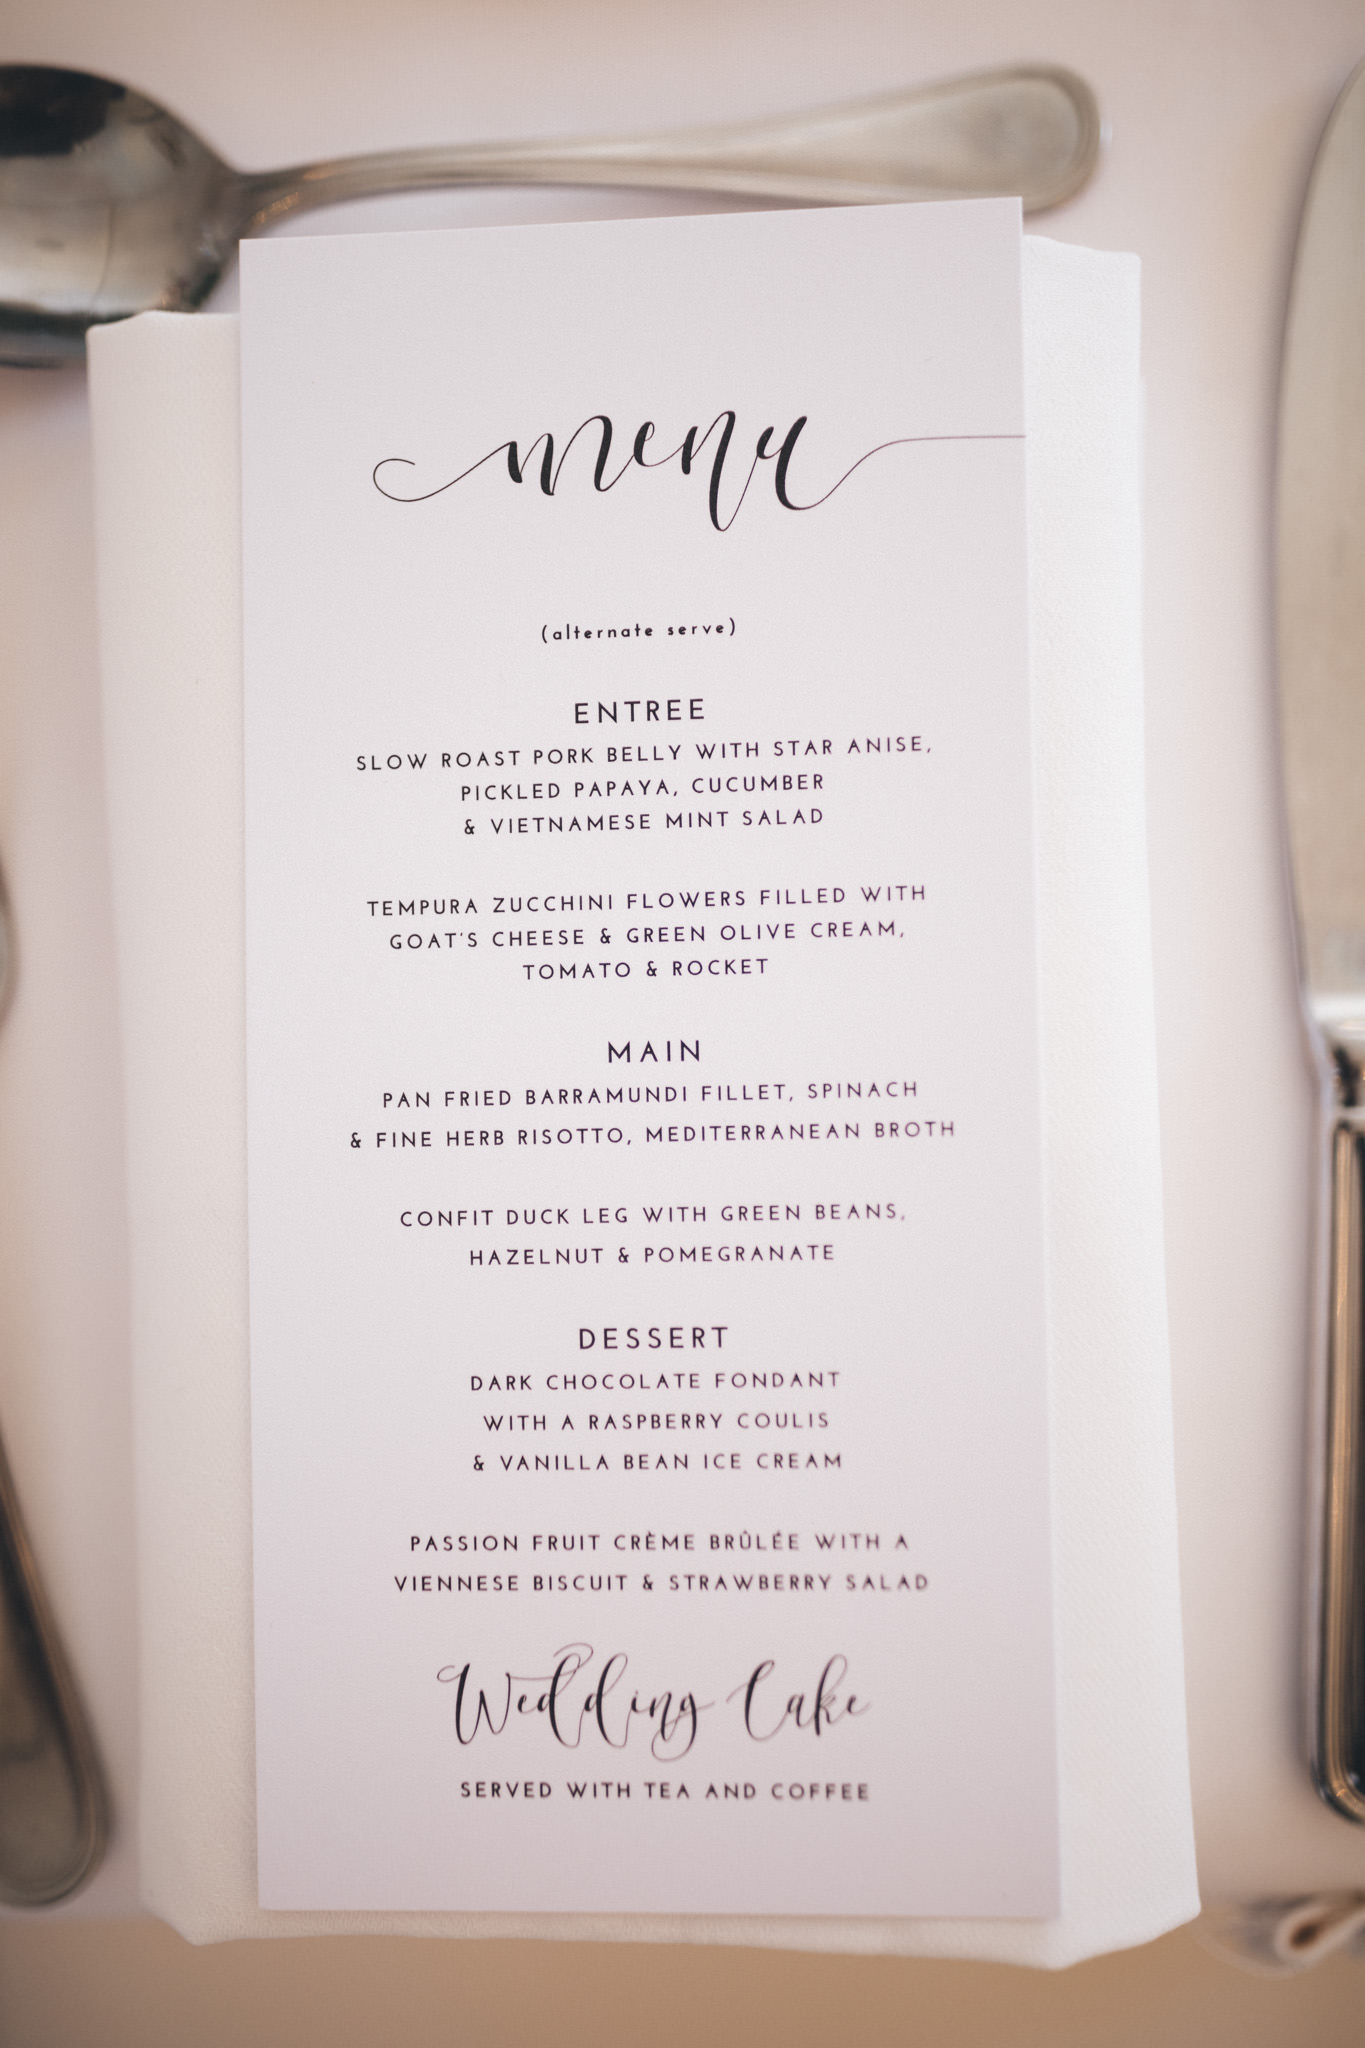 menu
(alternate serve)
ENTREE
SLOW ROAST PORK BELLY WITH STAR ANISE,
PICKLED PAPAYA, CUCUMBER
& VIETNAMESE MINT SALAD
TEMPURA ZUCCHINI FLOWERS FILLED WITH
GOAT'S CHEESE & GREEN OLIVE CREAM,
TOMATO & ROCKET
MAIN
PAN FRIED BARRAMUNDI FILLET, SPINACH
& FINE HERB RISOTTO, MEDITERRANEAN BROTH
CONFIT DUCK LEG WITH GREEN BEANS,
HAZELNUT & POMEGRANATE
DESSERT
DARK CHOCOLATE FONDANT
WITH A RASPBERRY COULIS
& VANILLA BEAN ICE CREAM
PASSION FRUIT CRÈME BRÛLÉE WITH A
VIENNESE BISCUIT & STRAWBERRY SALAD
Wedding Cake
SERVED WITH TEA AND COFFEE